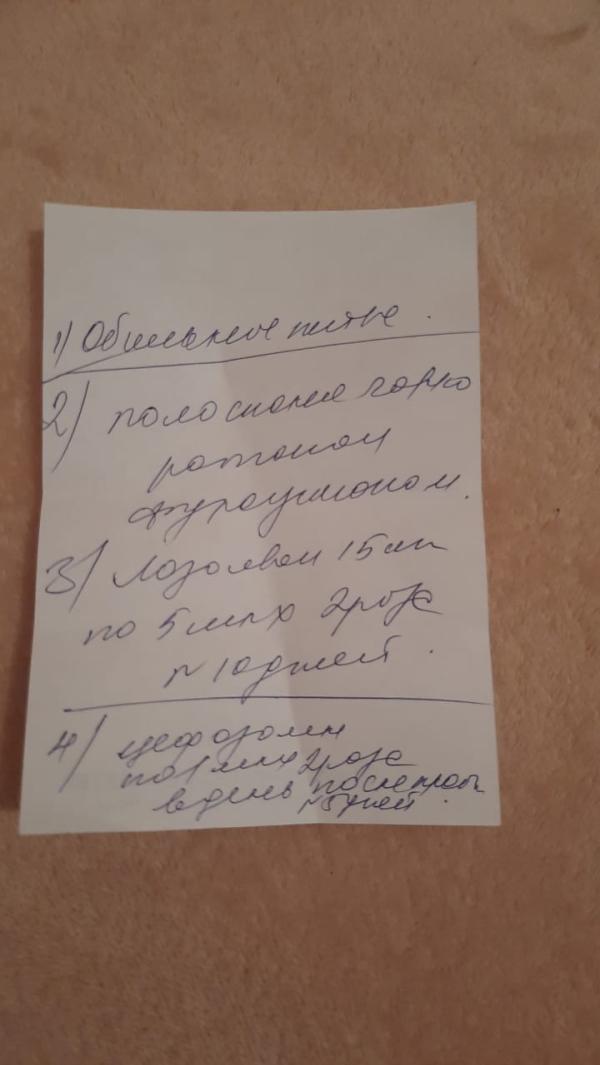 1) Обильное питье.
2) полоскание горло
ротокан
фурацилином.
3) Лазолван 15 мл
по 5 мл х 2 раза
N 10 дней.
4) цефазолин
по 1 мл х 2 раза
в день после пробы
N 5 дней.